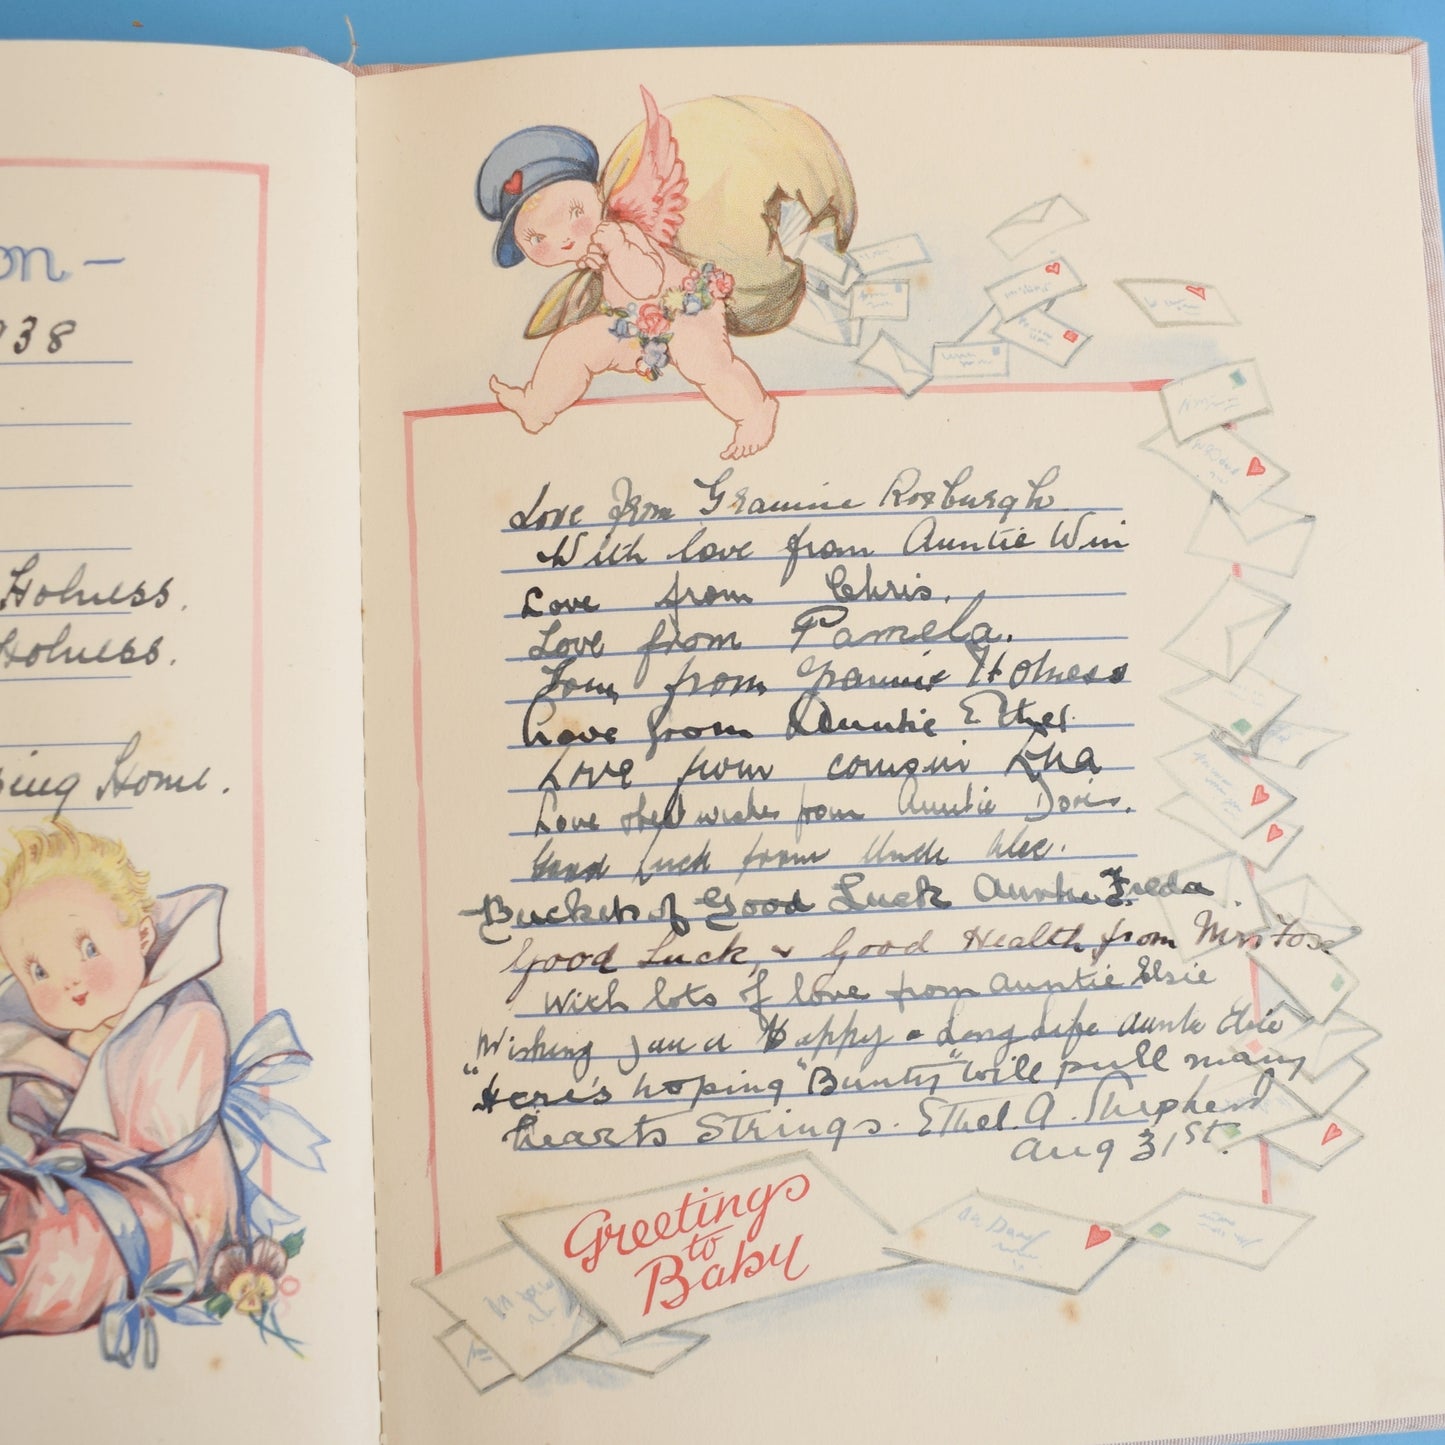 on -
938
Holness.
Holness.
ping Home.
Love from Grannie Roxburgh
With love from Auntie Win
Love from Chris.
Love from Pamela.
from Grannie Holness
Love from Auntie Ethel.
Love from cousin
Love & best wishes from Auntie Doris.
Good Luck from Uncle Alec.
Buckets of Good Luck Auntie Freda
Good Luck, & Good Health, from Mrs Fox.
With lots of love from Auntie Elsie
Wishing you a Happy & Long Life Auntie Elsie
"Here's hoping "Bunty" will pull many
hearts Strings. Ethel. A. Shepherd
Aug 31st.
Greetings
to
Baby